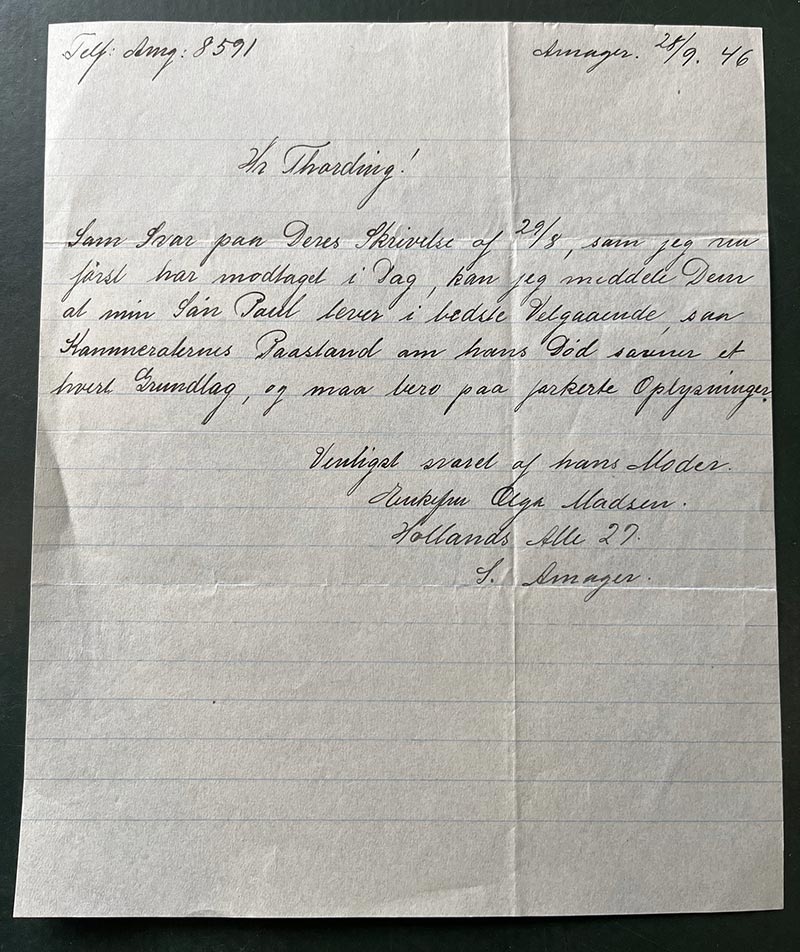 Telf: Amg: 8591 Amager. 28/9. 46
Hr Thording!
Som Svar paa Deres Skrivelse af 29/8, som jeg nu
først har modtaget i Dag, kan jeg meddele Dem
at min Søn Poul lever i bedste Velgaaende, saa
Kammeraternes Paastand om hans Død savner et
hvert Grundlag, og maa bero paa forkerte Oplysninger.
Venligst svaret af hans Moder.
Enkefru Olga Madsen.
Hollands Alle 27.
S. Amager.